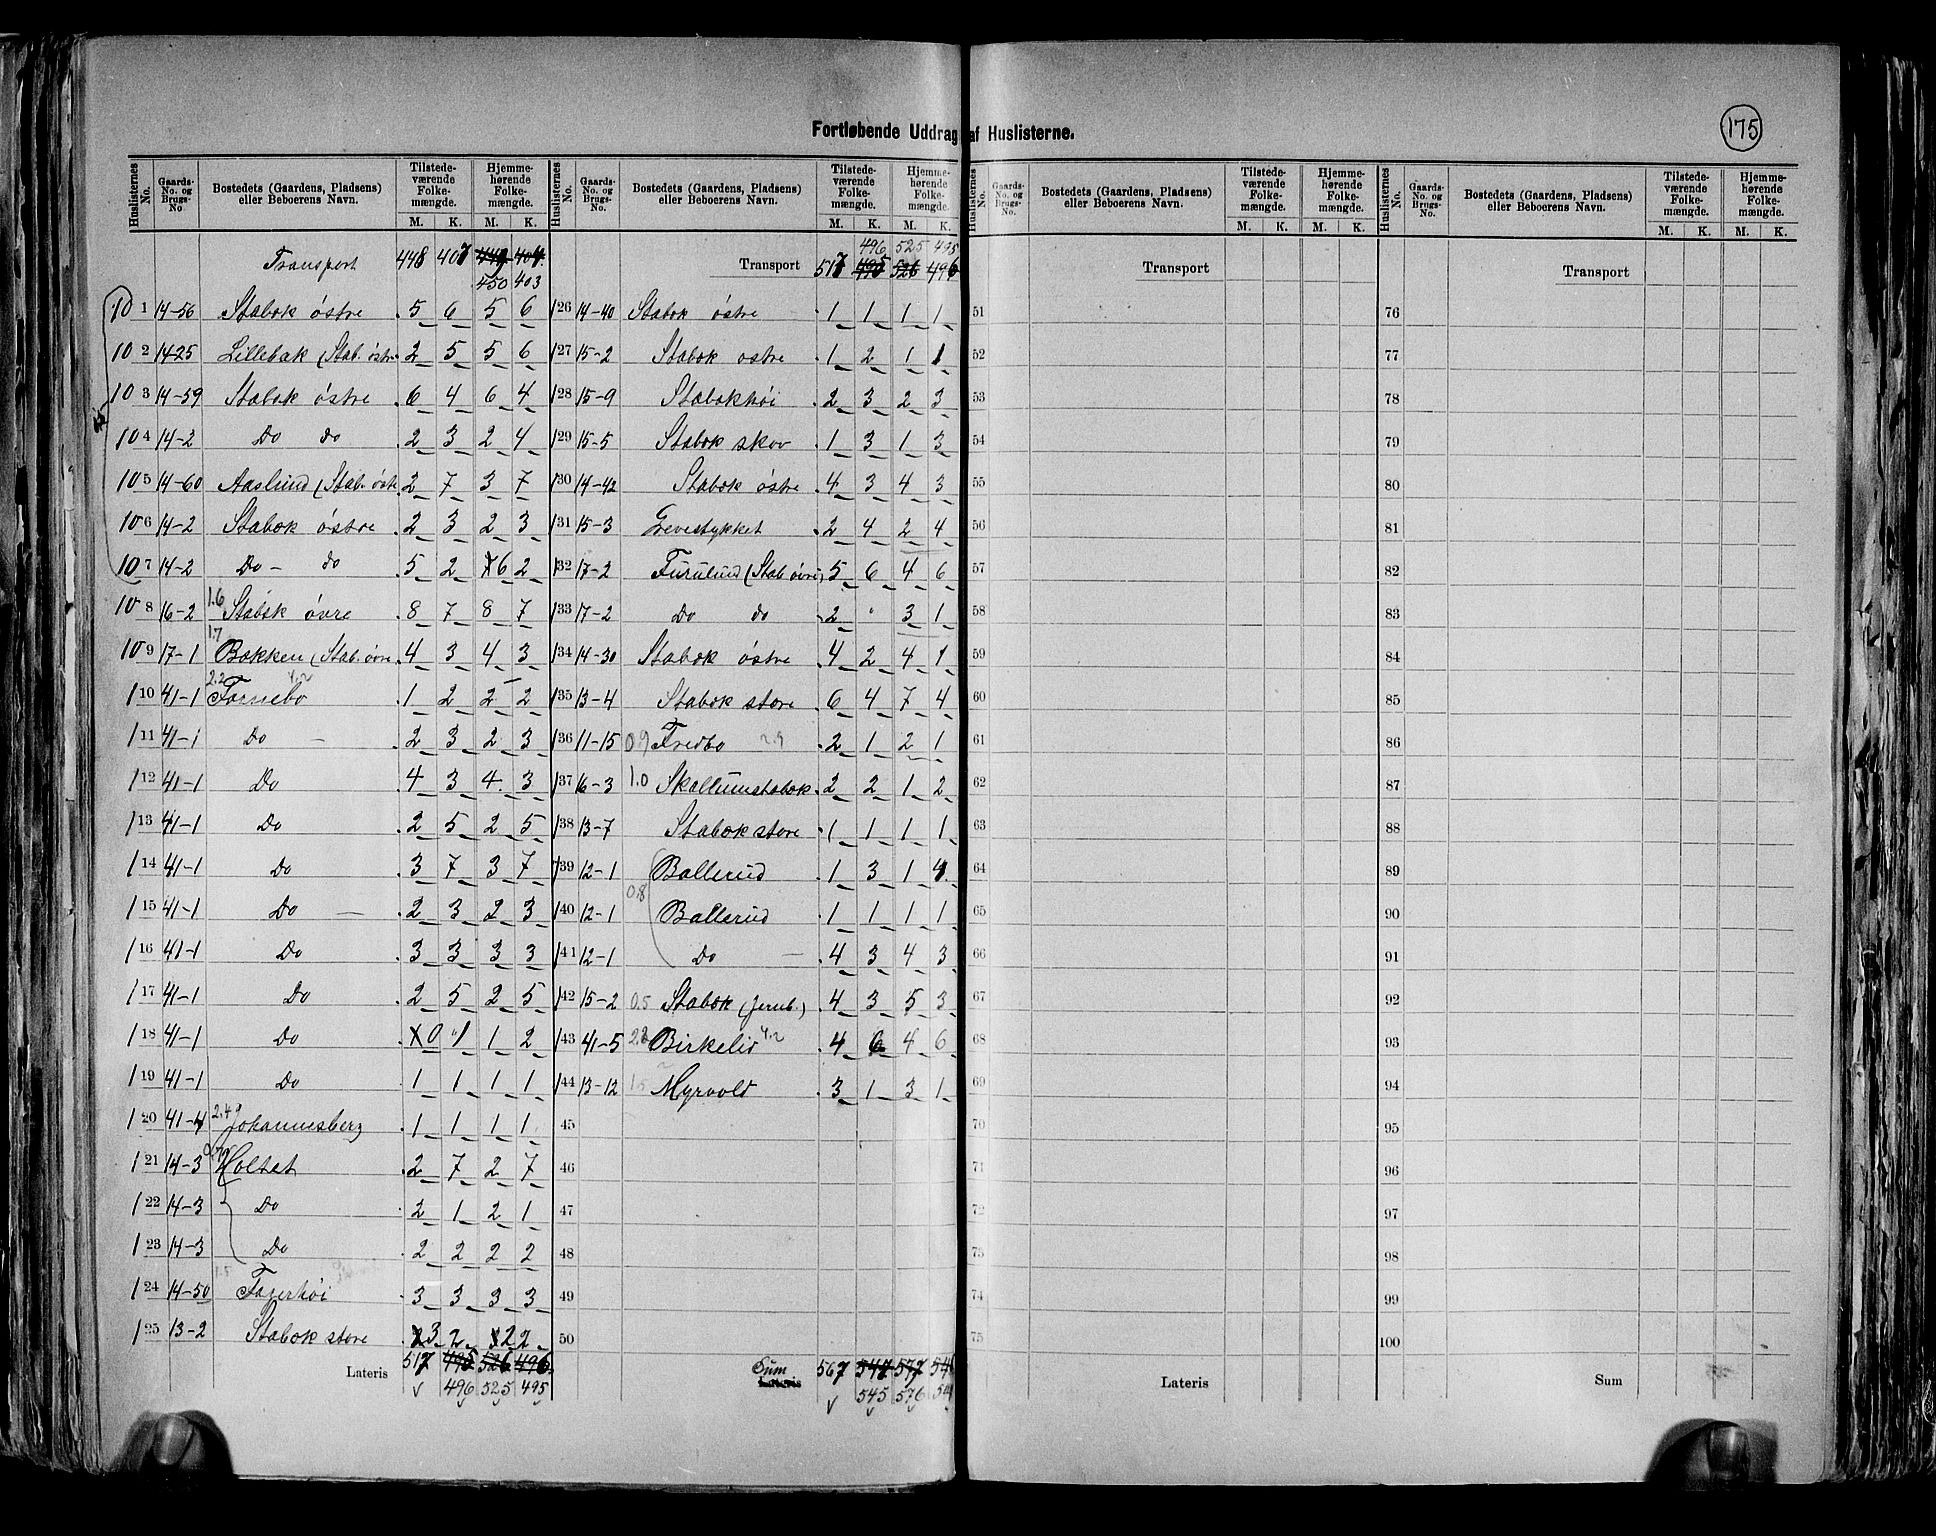 175
Fortløbende Uddrag af Huslisterne.
Huslisternes No. Gaards-No. og Brugs-No. Bostedets (Gaardens, Pladsens) eller Beboerens Navn. Tilstedeværende Folkemængde. M. K. Hjemmehørende Folkemængde. M. K.
Transport 448 407 450 403
101 14-56 Stabæk østre 5 6 5 6
102 14-25 Lillebæk (Stab. østre 2 5 5 6
103 14-59 Stabæk østre 6 4 6 4
104 14-2 Do do 2 3 2 4
105 14-60 Aaslund (Stab. østre 2 7 3 7
106 14-2 Stabæk østre 2 3 2 3
107 14-2 Do - do 5 2 6 2
108 16-2 1.6 Stabæk øvre 8 7 8 7
109 17-1 1.7 Bakken (Stab. øvre 4 3 4 3
110 41-1 2.2 Fornebo 4.2 1 2 2 2
111 41-1 Do 2 3 2 3
112 41-1 Do 4 3 4 3
113 41-1 Do 2 5 2 5
114 41-1 Do 3 7 3 7
115 41-1 Do 2 3 2 3
116 41-1 Do 3 3 3 3
117 41-1 Do 2 5 2 5
118 41-1 Do 0 1 1 2
119 41-1 Do 1 1 1 1
120 41-4 Johannesberg 1 1 1 1
121 14-3 Holtet 2 7 2 7
122 14-3 Do 2 1 2 1
123 14-3 Do 2 2 2 2
124 14-50 1.5 Fagerhøi 3 3 3 3
125 13-2 Stabæk store 3 2 2 2
Lateris 517 495 526 496
496 525 495
Huslisternes No. Gaards-No. og Brugs-No. Bostedets (Gaardens, Pladsens) eller Beboerens Navn. Tilstedeværende Folkemængde. M. K. Hjemmehørende Folkemængde. M. K.
496 525 495
Transport 517 495 526 496
126 14-40 Stabæk østre 1 1 1 1
127 15-2 Stabæk østre 1 2 1 1
128 15-9 Stabækhøi 2 3 2 3
129 15-5 Stabæk skov 1 3 1 3
130 14-42 Stabæk østre 4 3 4 3
131 15-3 Grevestykket 2 4 2 4
132 17-2 Furulund (Stab øvre) 5 6 4 6
133 17-2 Do do 2 " 3 1
134 14-30 Stabæk østre 4 2 4 1
135 13-4 Stabæk store 6 4 7 4
136 11-15 0.9 Fredbo 2.9 2 1 2 1
137 16-3 1.0 Skallumstabæk 2 2 1 2
138 13-7 Stabæk store 1 1 1 1
139 12-1 Ballerud 1 3 1 4
0.8
140 12-1 Ballerud 1 1 1 1
141 12-1 Do 4 3 4 3
142 15-2 0.5 Stabæk (Jernb.) 4 3 5 3
143 41-5 Birkelid 4.2 4 6 4 6
144 13-12 1.5 Myrvold 3 1 3 1
45
46
47
48
49
50
Sum Lateris 567 547 577
545 576
Huslisternes No. Gaards-No. og Brugs-No. Bostedets (Gaardens, Pladsens) eller Beboerens Navn. Tilstedeværende Folkemængde. M. K. Hjemmehørende Folkemængde. M. K.
Transport
51
52
53
54
55
56
57
58
59
60
61
62
63
64
65
66
67
68
69
70
71
72
73
74
75
Lateris
Huslisternes No. Gaards-No. og Brugs-No. Bostedets (Gaardens, Pladsens) eller Beboerens Navn. Tilstedeværende Folkemængde. M. K. Hjemmehørende Folkemængde. M. K.
Transport
76
77
78
79
80
81
82
83
84
85
86
87
88
89
90
91
92
93
94
95
96
97
98
99
100
Sum